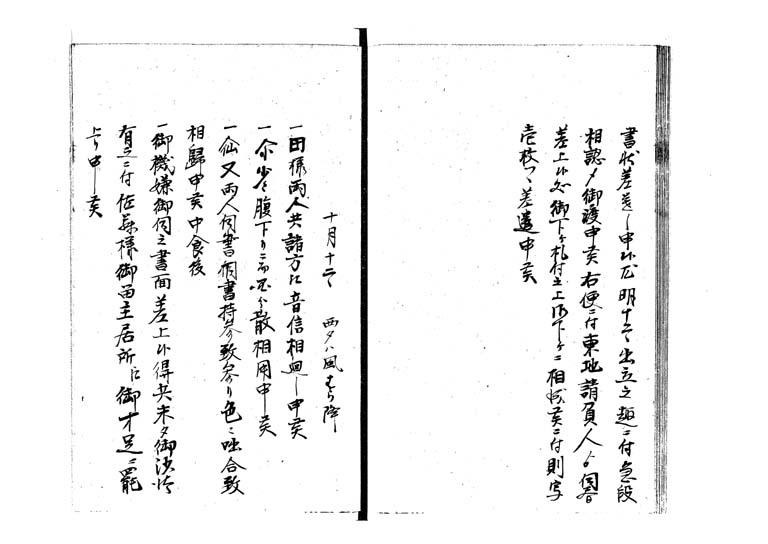 書状差遣し申候処明十二日出立之趣ニ付急段
相認メ御渡申候右便ニ付東地請負人より伺書
差上候処御下ケ札付立上御下ケニ相成候ニ付則写
壱枚つゝ差遣申候
十月十二日 西夕ハ風はら降
一田様両人共諸方江音信相廻し申候
一尓少々腹下りニ而 散相用申候
一仙又両人伺書個書持参致参り色々咄合致
相歸申候中食後
一御機嫌御伺之書面差上候得共未タ御沙汰
有之ニ付佐藤様御留主居所江御才足ニ罷
上り申候